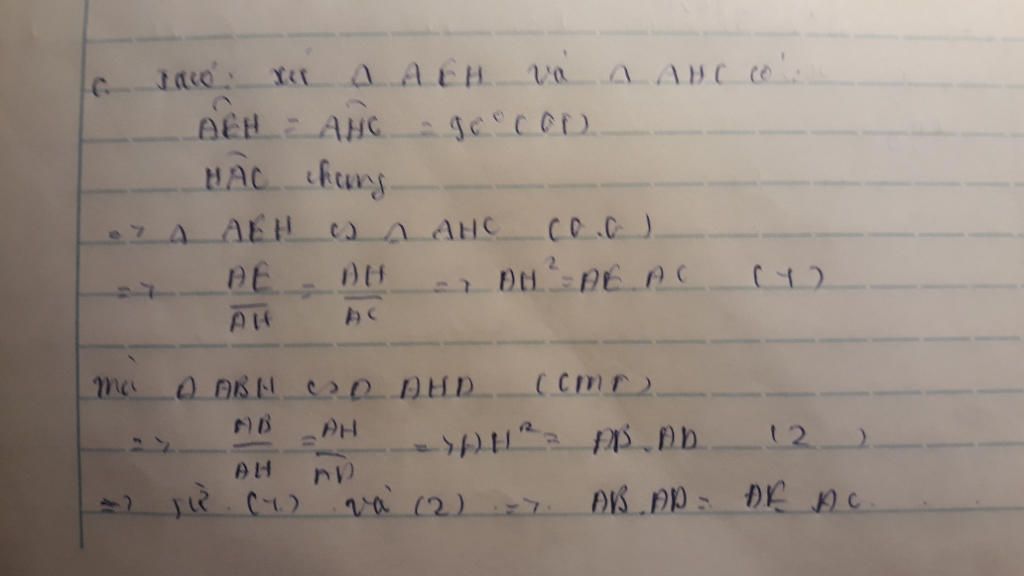 c. Ta có: xét Δ AEH và Δ AHC có:
AÊH = AĤC = 90° (GT)
HÂC chung
=> Δ AEH ∽ Δ AHC (G.G)
=> AE/AH = AH/AC => AH² = AE.AC (1)
mà Δ ABH ∽ Δ AHD (cmt)
=> AB/AH = AH/AD => AH² = AB.AD (2)
=> Từ (1) và (2) => AB.AD = AE.AC.